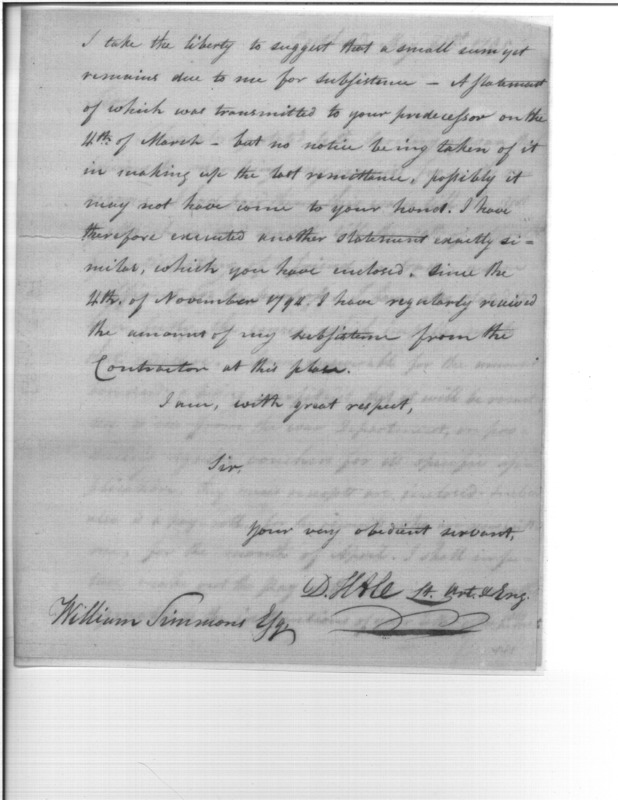 I take the liberty to suggest that a small sum yet
remains due to me for subsistence – A statement
of which was transmitted to your predecessor on the
4th. of March – but no notice being taken of it
in making up the last remittance, possibly it
may not have come to your hand. I have
therefore executed another statement exactly si-
milar, which you have enclosed. Since the
4th. of November 1794. I have regularly received
the amount of my subsistence from the
Contractor at this place.
I am, with great respect,
Sir,
Your very obedient servant,
D. Hale Lt. Art. & Eng.
William Simmons Esq.